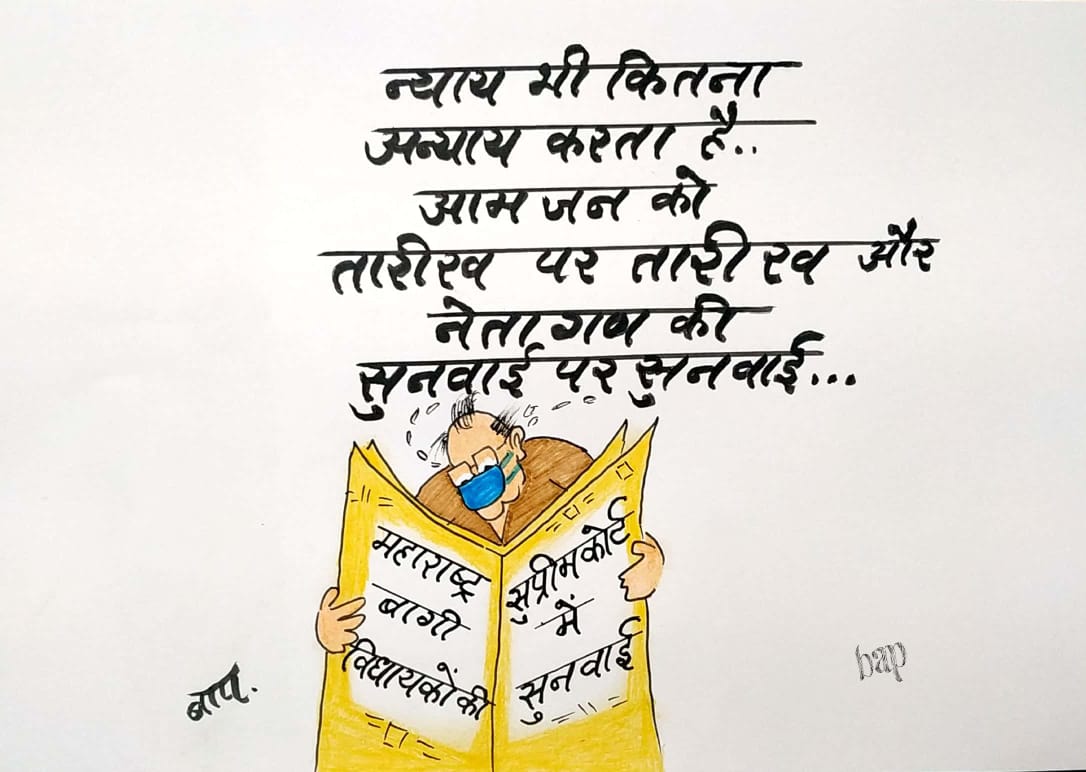 न्याय भी कितना
अन्याय करता है..
आम जन को
तारीख पर तारीख और
नेता गण की
सुनवाई पर सुनवाई...
महाराष्ट्र
बागी
विधायकों की
सुप्रीम कोर्ट
में
सुनवाई
बाप.
bap